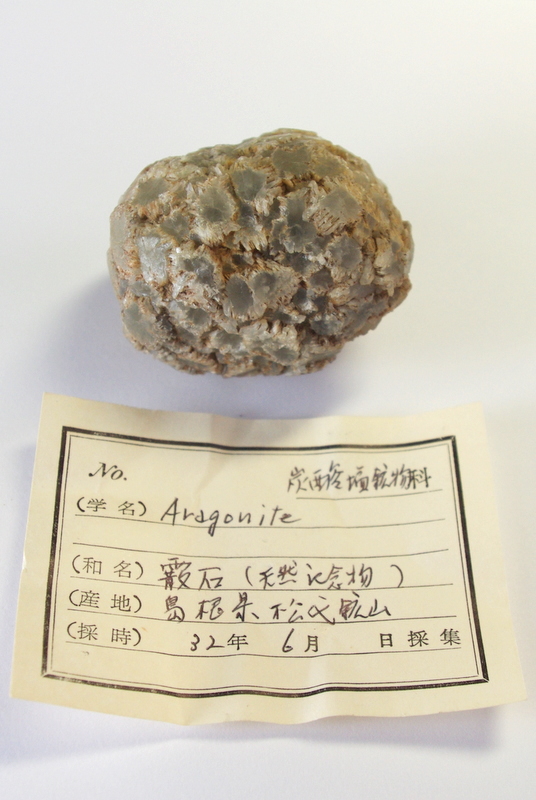 No.
炭酸塩鉱物科
(学名) Aragonite
(和名) 霰石 (天然記念物)
(産地) 島根県 松代鉱山
(採時) 32年 6月 日採集